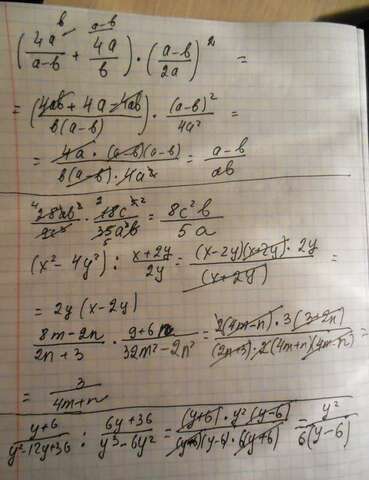 (4a/(a-b) ^b + 4a/b ^(a-b)) · ((a-b)/2a)² =
= ((4ab + 4a² - 4ab)/(b(a-b))) · (a-b)²/4a² =
= (4a · (a-b)(a-b))/(b(a-b) · 4a²) = (a-b)/ab
28ab²/9c³ · 18c⁵/35a²b = 8c²b/5a
(x² - 4y²) : (x+2y)/2y = ((x-2y)(x+2y) · 2y)/(x+2y) =
= 2y(x-2y)
(8m-2n)/(2n+3) · (9+6n)/(32m²-2n²) = (2(4m-n) · 3(3+2n))/((2n+3) · 2(4m+n)(4m-n)) =
= 3/(4m+n)
(y+6)/(y²-12y+36) : (6y+36)/(y³-6y²) = ((y+6) · y²(y-6))/((y-6)(y-6) · 6(y+6)) = y²/6(y-6)